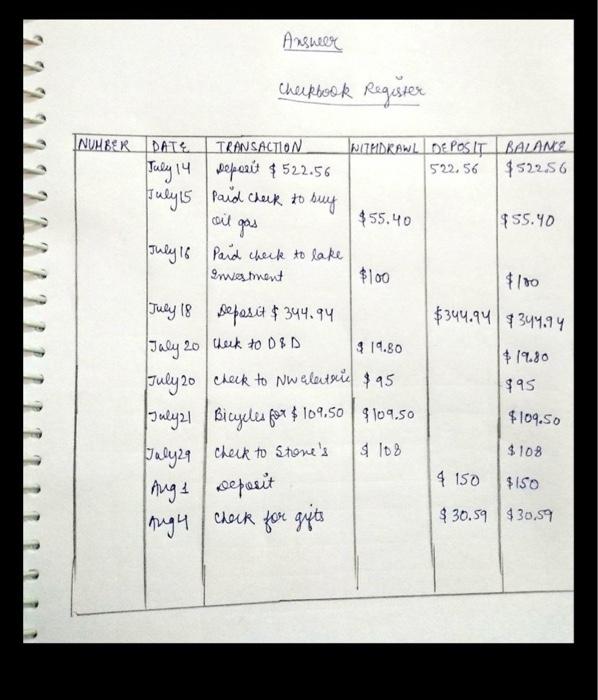 Answer
Checkbook Register
NUMBER DATE TRANSACTION WITHDRAWL DEPOSIT BALANCE
July 14 Deposit $ 522.56 522.56 $522.56
July 15 Paid check to buy
oil gas $55.40 $55.40
July 16 Paid check to lake
Investment $100 $100
July 18 Deposit $ 344.94 $344.94 $344.94
July 20 Check to D&D $ 19.80 $19.80
July 20 check to NW electric $95 $95
July 21 Bicycles for $ 109.50 $109.50 $109.50
July 29 check to Stone's $ 108 $108
Aug 1 Deposit $ 150 $150
Aug 4 check for gifts $ 30.59 $30.59